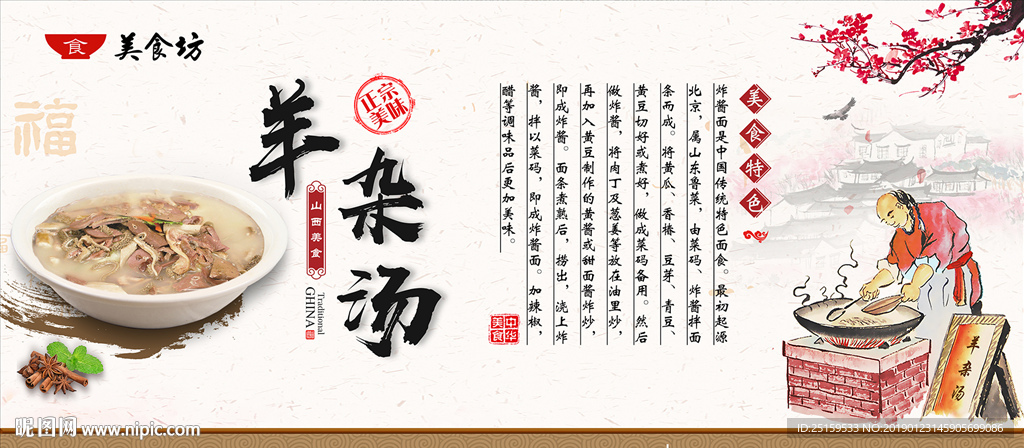 食
美食坊
福
羊杂汤
正宗
美味
山西美食
Traditional
GHINA
美食特色
炸酱面是中国传统特色面食。最初起源
北京，属山东鲁菜，由菜码、炸酱拌面
条而成。将黄瓜、香椿、豆芽、青豆、
黄豆切好或煮好，做成菜码备用。然后
做炸酱，将肉丁及葱姜等放在油里炒，
再加入黄豆制作的黄酱或甜面酱炸炒，
即成炸酱。面条煮熟后，捞出，浇上炸
酱，拌以菜码，即成炸酱面。加辣椒，
醋等调味品后更加美味。
中华
美食
羊杂汤
昵图网 www.nipic.com
ID:25159533 NO:20190123145905699086